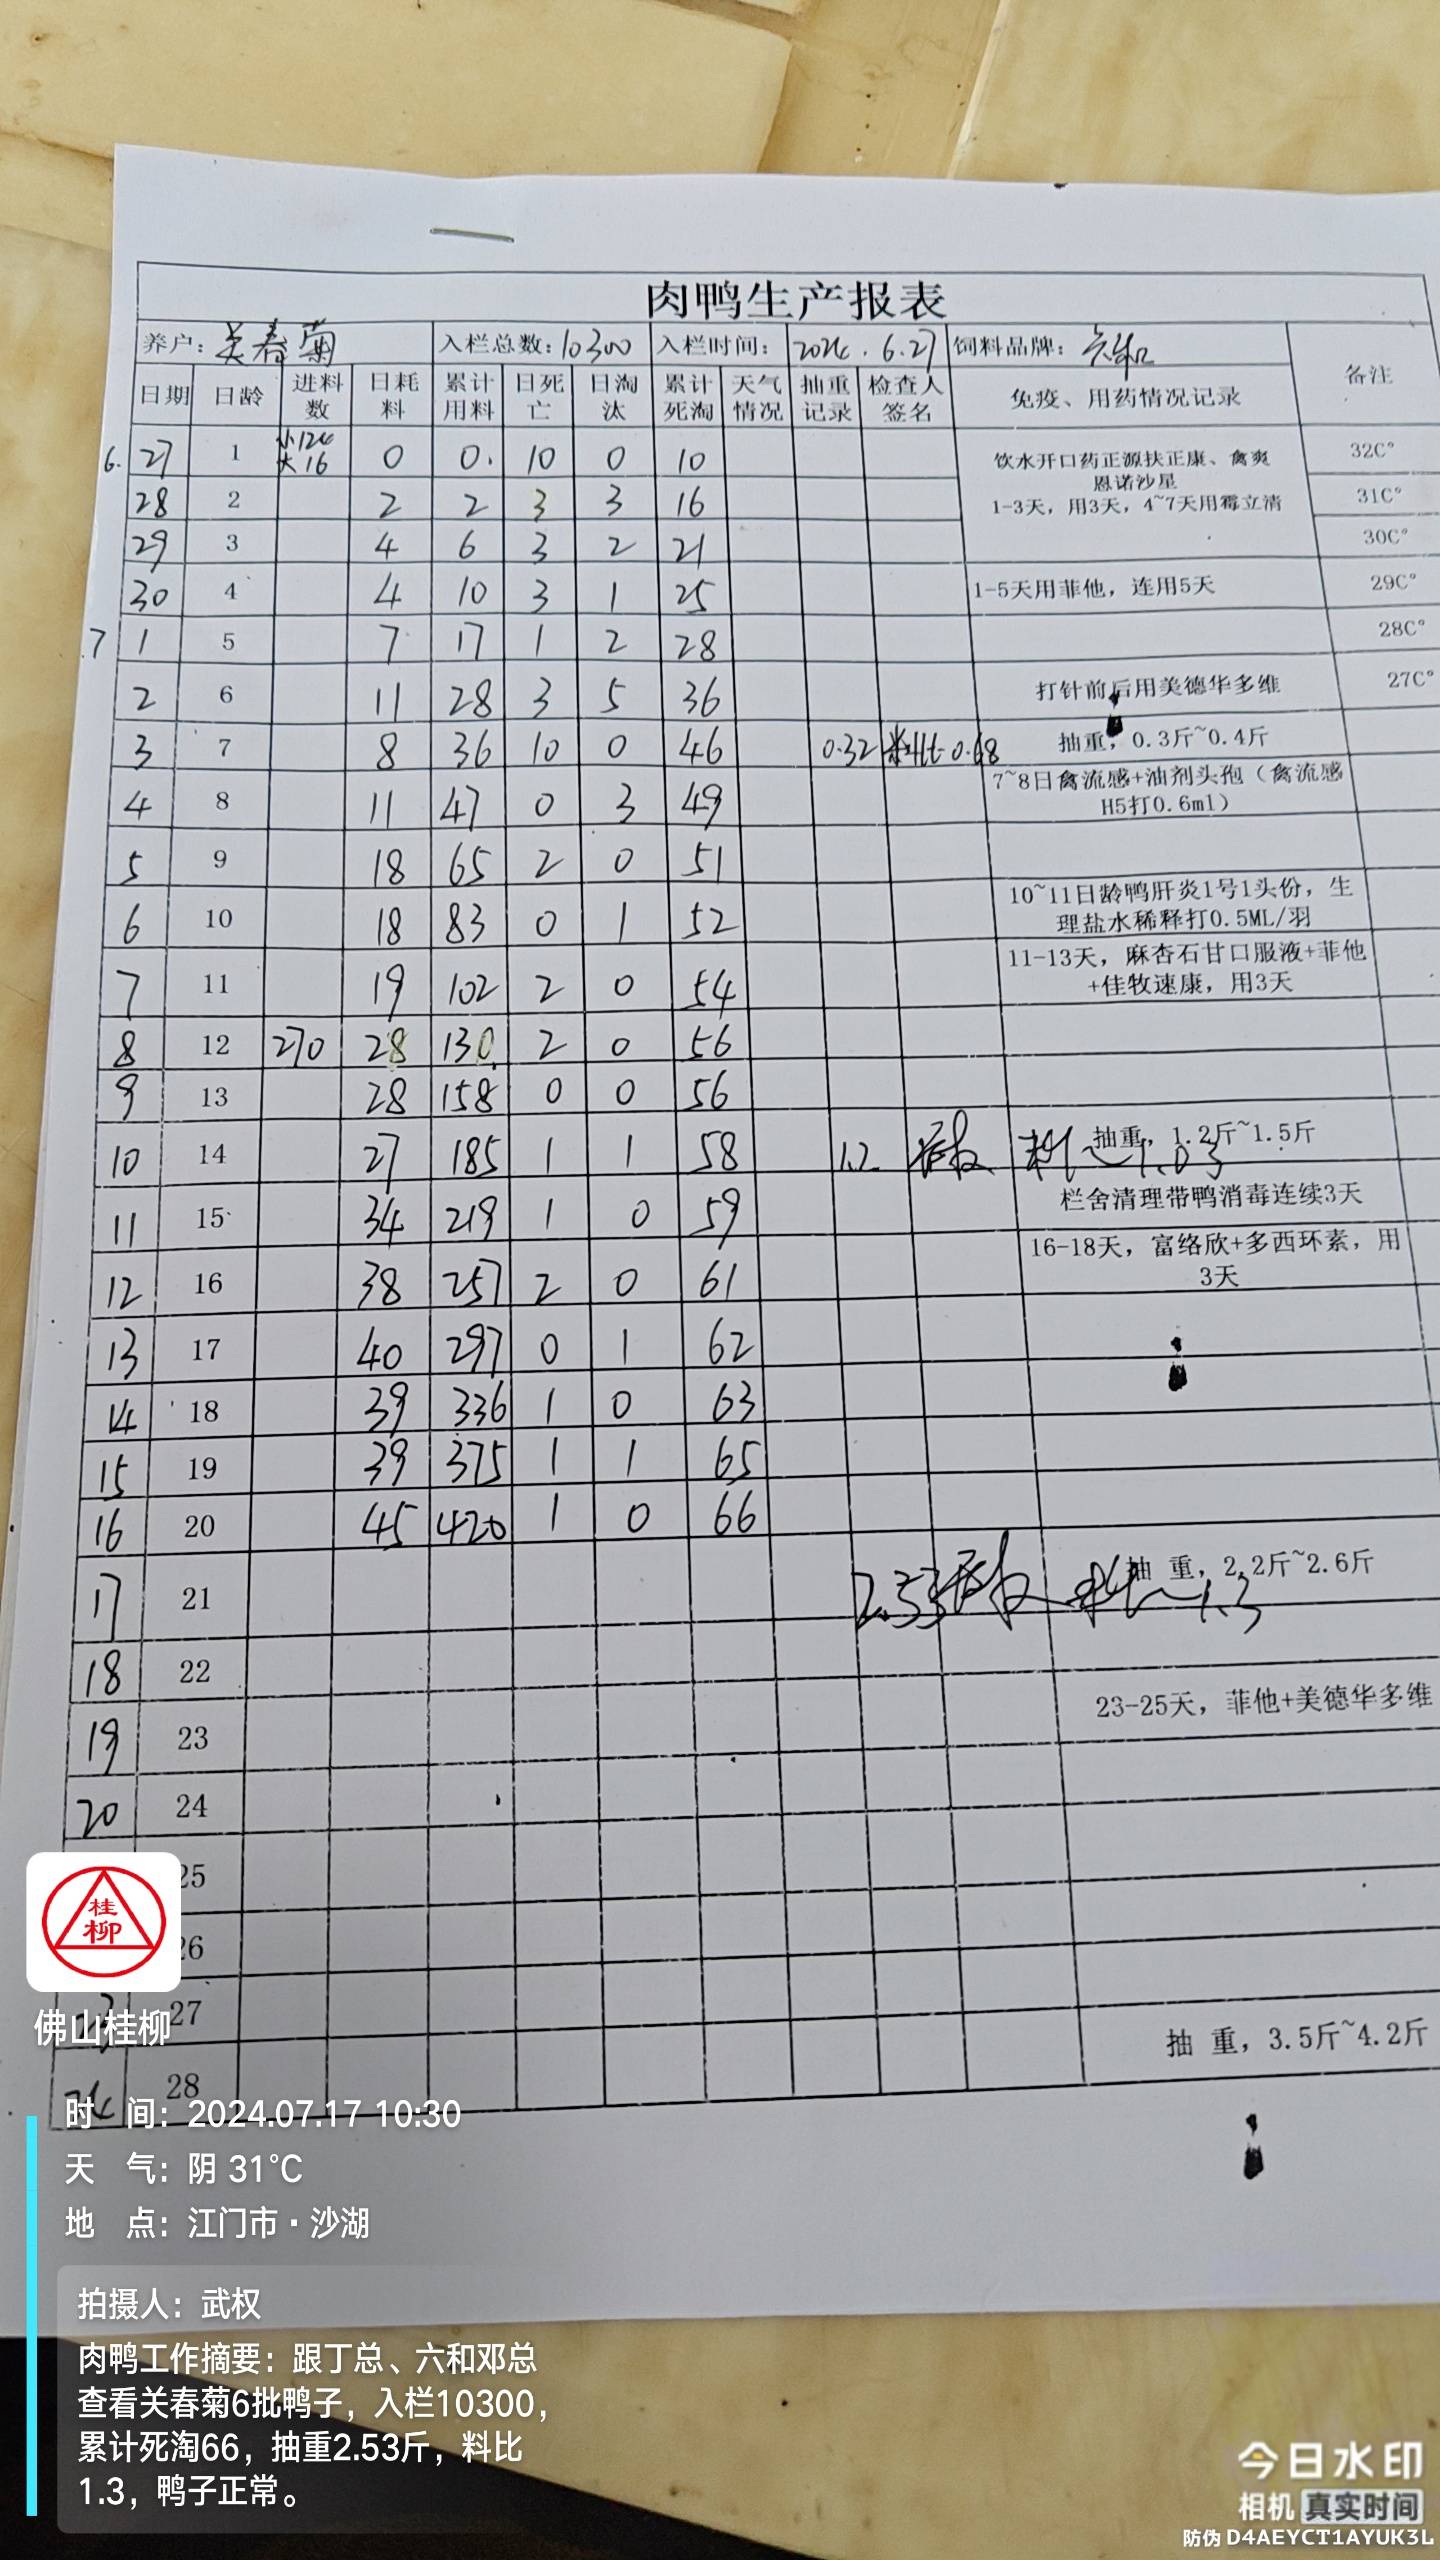 肉鸭生产报表
养户：关春菊 入栏总数：10300 入栏时间： 2024.6.27 饲料品牌：六和 备注
日期 日龄 进料数 日耗料 累计用料 日死亡 日淘汰 累计死淘 天气情况 抽重记录 检查人签名 免疫、用药情况记录
6. 27 1 小124 大16 0 0. 10 0 10 饮水开口药正源扶正康、禽爽 32C°
恩诺沙星
28 2 2 2 3 3 16 1-3天，用3天，4~7天用霉立清 31C°
29 3 4 6 3 2 21 30C°
30 4 4 10 3 1 25 1-5天用菲他，连用5天 29C°
7 1 5 7 17 1 2 28 28C°
2 6 11 28 3 5 36 打针前后用美德华多维 27C°
3 7 8 36 10 0 46 0.32 料比0.68 抽重，0.3斤~0.4斤
4 8 11 47 0 3 49 7~8日禽流感+油剂头孢（禽流感
H5打0.6ml）
5 9 18 65 2 0 51
6 10 18 83 0 1 52 10~11日龄鸭肝炎1号1头份，生
理盐水稀释打0.5ML/羽
7 11 19 102 2 0 54 11-13天，麻杏石甘口服液+菲他
+佳牧速康，用3天
8 12 270 28 130 2 0 56
9 13 28 158 0 0 56
10 14 27 185 1 1 58 1.2 武权 料比1.03 抽重，1.2斤~1.5斤
11 15 34 219 1 0 59 栏舍清理带鸭消毒连续3天
12 16 38 257 2 0 61 16-18天，富络欣+多西环素，用
3天
13 17 40 297 0 1 62
14 18 39 336 1 0 63
15 19 39 375 1 1 65
16 20 45 420 1 0 66
17 21 2.53 武权 料比1.3 抽 重，2.2斤~2.6斤
18 22
19 23 23-25天，菲他+美德华多维
20 24
25
26
27
24 28 抽 重，3.5斤~4.2斤
桂柳
佛山桂柳
时 间：2024.07.17 10:30
天 气：阴 31℃
地 点：江门市·沙湖
拍摄人：武权
肉鸭工作摘要：跟丁总、六和邓总
查看关春菊6批鸭子，入栏10300，
累计死淘66，抽重2.53斤，料比
1.3，鸭子正常。
今日水印
相机 真实时间
防伪 D4AEYCT1AYUK3L